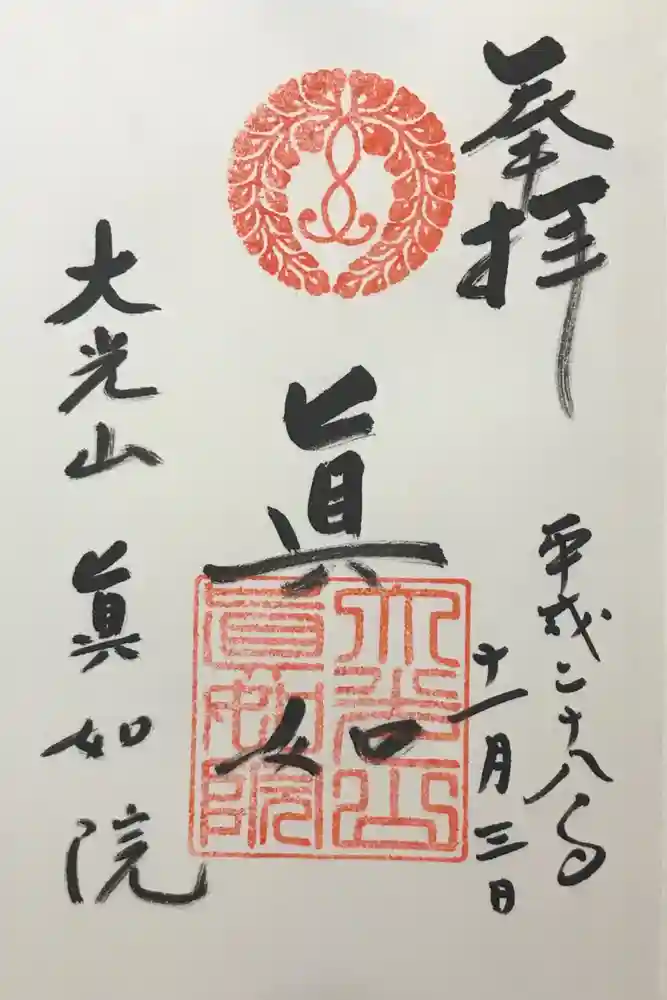 奉拝
平成二十八年
十一月三日
眞如
大光山
眞如院
大光山
眞如院